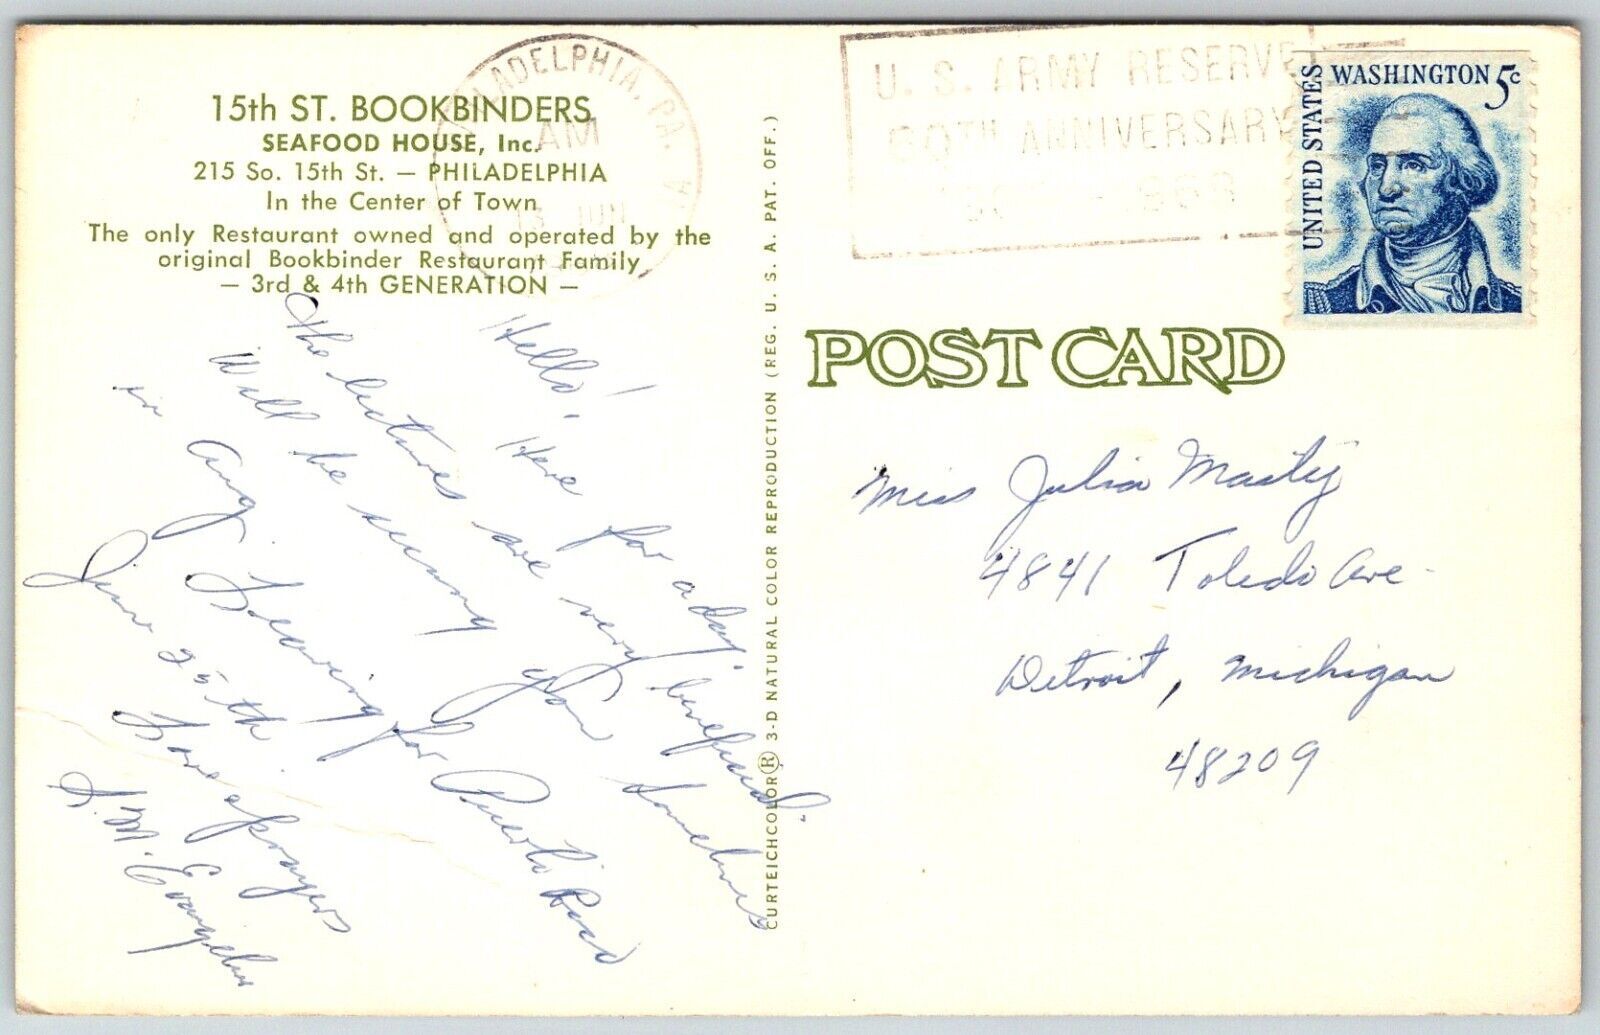 15th ST. BOOKBINDERS
SEAFOOD HOUSE, Inc.
215 So. 15th St. — PHILADELPHIA
In the Center of Town
The only Restaurant owned and operated by the
original Bookbinder Restaurant Family
— 3rd & 4th GENERATION —
Hello! Here for a day.
The lectures are very beneficial.
Will be seeing you sometime
in Aug. Leaving for Puerto Rico
June 25th.
Love & prayers
S. M. Evangeline
CURTEICHCOLOR® 3-D NATURAL COLOR REPRODUCTION (REG. U. S. A. PAT. OFF.)
PHILADELPHIA, PA.
AM
JUN
U. S. ARMY RESERVE
60TH ANNIVERSARY
UNITED STATES
WASHINGTON 5c
POST CARD
Miss Julia Masty
4841 Toledo Ave.
Detroit, Michigan
48209